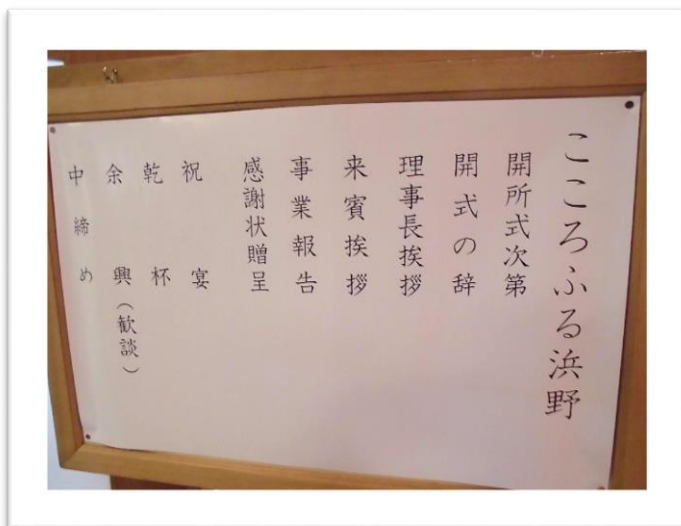 こころふる浜野
開所式次第
開式の辞
理事長挨拶
来賓挨拶
事業報告
感謝状贈呈
祝宴
乾杯
余興（歓談）
中締め